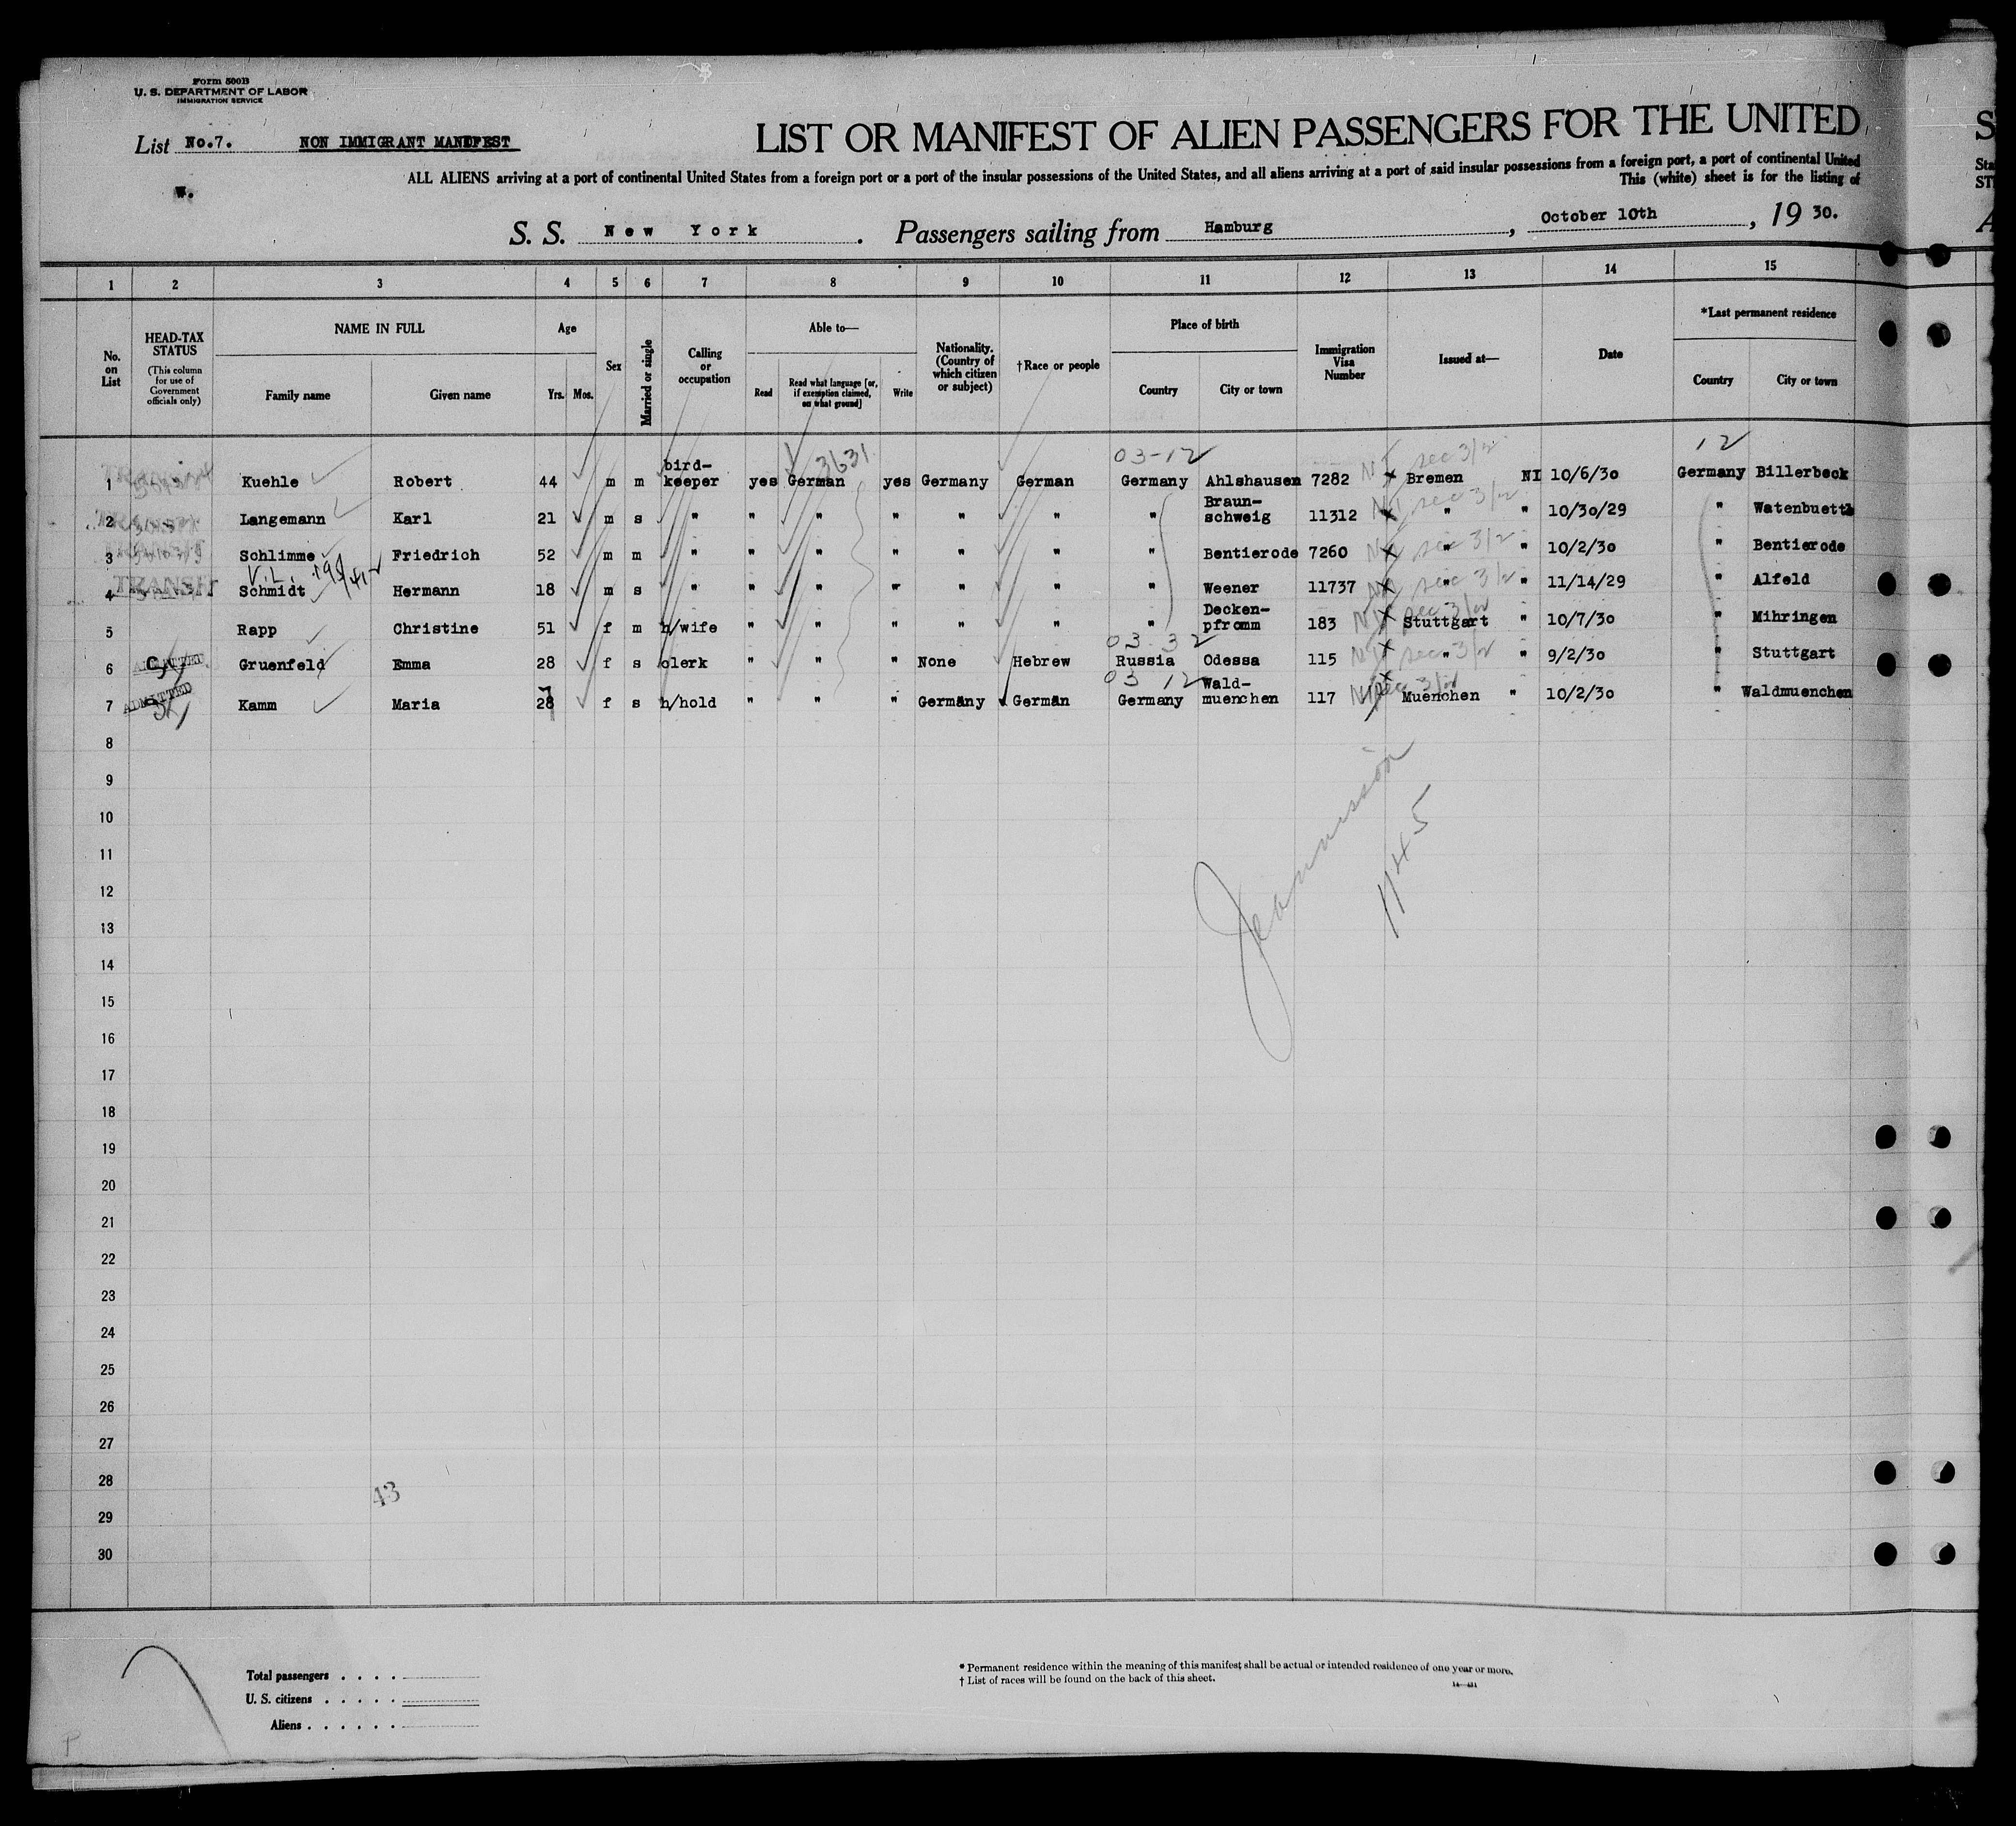 Form 500B
U. S. DEPARTMENT OF LABOR
IMMIGRATION SERVICE
List No.7. NON IMMIGRANT MANIFEST
LIST OR MANIFEST OF ALIEN PASSENGERS FOR THE UNITED
S
ALL ALIENS arriving at a port of continental United States from a foreign port or a port of the insular possessions of the United States, and all aliens arriving at a port of said insular possessions from a foreign port, a port of continental United
Sta
W.
This (white) sheet is for the listing of
ST
S. S. New York. Passengers sailing from Hamburg, October 10th, 1930.
A
1 2 3 4 5 6 7 8 9 10 11 12 13 14 15
No. on List
HEAD-TAX STATUS
(This column for use of Government officials only)
NAME IN FULL
Family name Given name
Age
Yrs. Mos.
Sex
Married or single
Calling or occupation
Able to—
Read
Read what language [or, if exemption claimed, on what ground]
Write
Nationality. (Country of which citizen or subject)
†Race or people
Place of birth
Country City or town
Immigration Visa Number
Issued at—
Date
*Last permanent residence
Country City or town
3631 03-12 sec 3/2 12
1 Kuehle Robert 44 m m bird-keeper yes German yes Germany German Germany Ahlshausen 7282 Bremen NI 10/6/30 Germany Billerbeck
2 Langemann Karl 21 m s " " " " " " " Braun-schweig 11312 sec 3/2 " " 10/30/29 " Watenbuettl
3 Schlimme Friedrich 52 m m " " " " " " " Bentierode 7260 sec 3/2 " " 10/2/30 " Bentierode
V.L.
TRANSIT
4 Schmidt Hermann 18 m s " " " " " " " Weener 11737 sec 3/2 " " 11/14/29 " Alfeld
5 Rapp Christine 51 f m h/wife " " " " " " Decken-pfromm 183 sec 3/2 Stuttgart " 10/7/30 " Mihringen
03 32
6 ADMITTED Gruenfeld Emma 28 f s clerk " " " None Hebrew Russia Odessa 115 sec 3/2 " " 9/2/30 " Stuttgart
03 12
7 ADMITTED Kamm Maria 28 f s h/hold " " " Germany German Germany Wald-muenchen 117 sec 3/2 Muenchen " 10/2/30 " Waldmuenchen
8
9
10
11
12
13
14
15
16
17
18
19
20
21
22
23
24
25
26
27
28
43
29
30
1145
Total passengers . . . .
U. S. citizens . . . . .
Aliens . . . . . .
* Permanent residence within the meaning of this manifest shall be actual or intended residence of one year or more.
† List of races will be found on the back of this sheet.